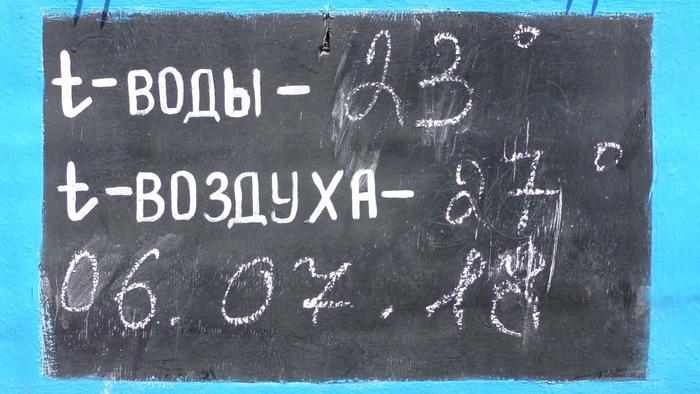 t-ВОДЫ- 23°
t-ВОЗДУХА- 27°
06.07.18